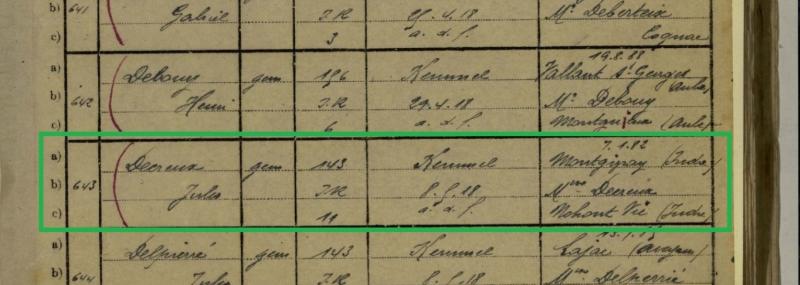 b) 641 Gabriel J.R 25.4.18 Mr Deberteix
c) 3 a. d. f. Cognac
19.8.88
a) Debouy gem 156 Kemmel Vallant St Georges
Aube)
b) 642 Henri J.R 29.4.18 Mr Debouy
c) 6 a. d. f. (Aube)
7.1.82
a) Decreux gem 143 Kemmel Montgipay (Indre)
b) 643 Jules J.R 8.5.18 Mme Decreux
c) 11 a. d. f. Nohant Vic (Indre)
a) Delpierré gem 143 Kemmel (Aveyron)
b) 644 Jules J.R 8.5.18 Mme Delpierré